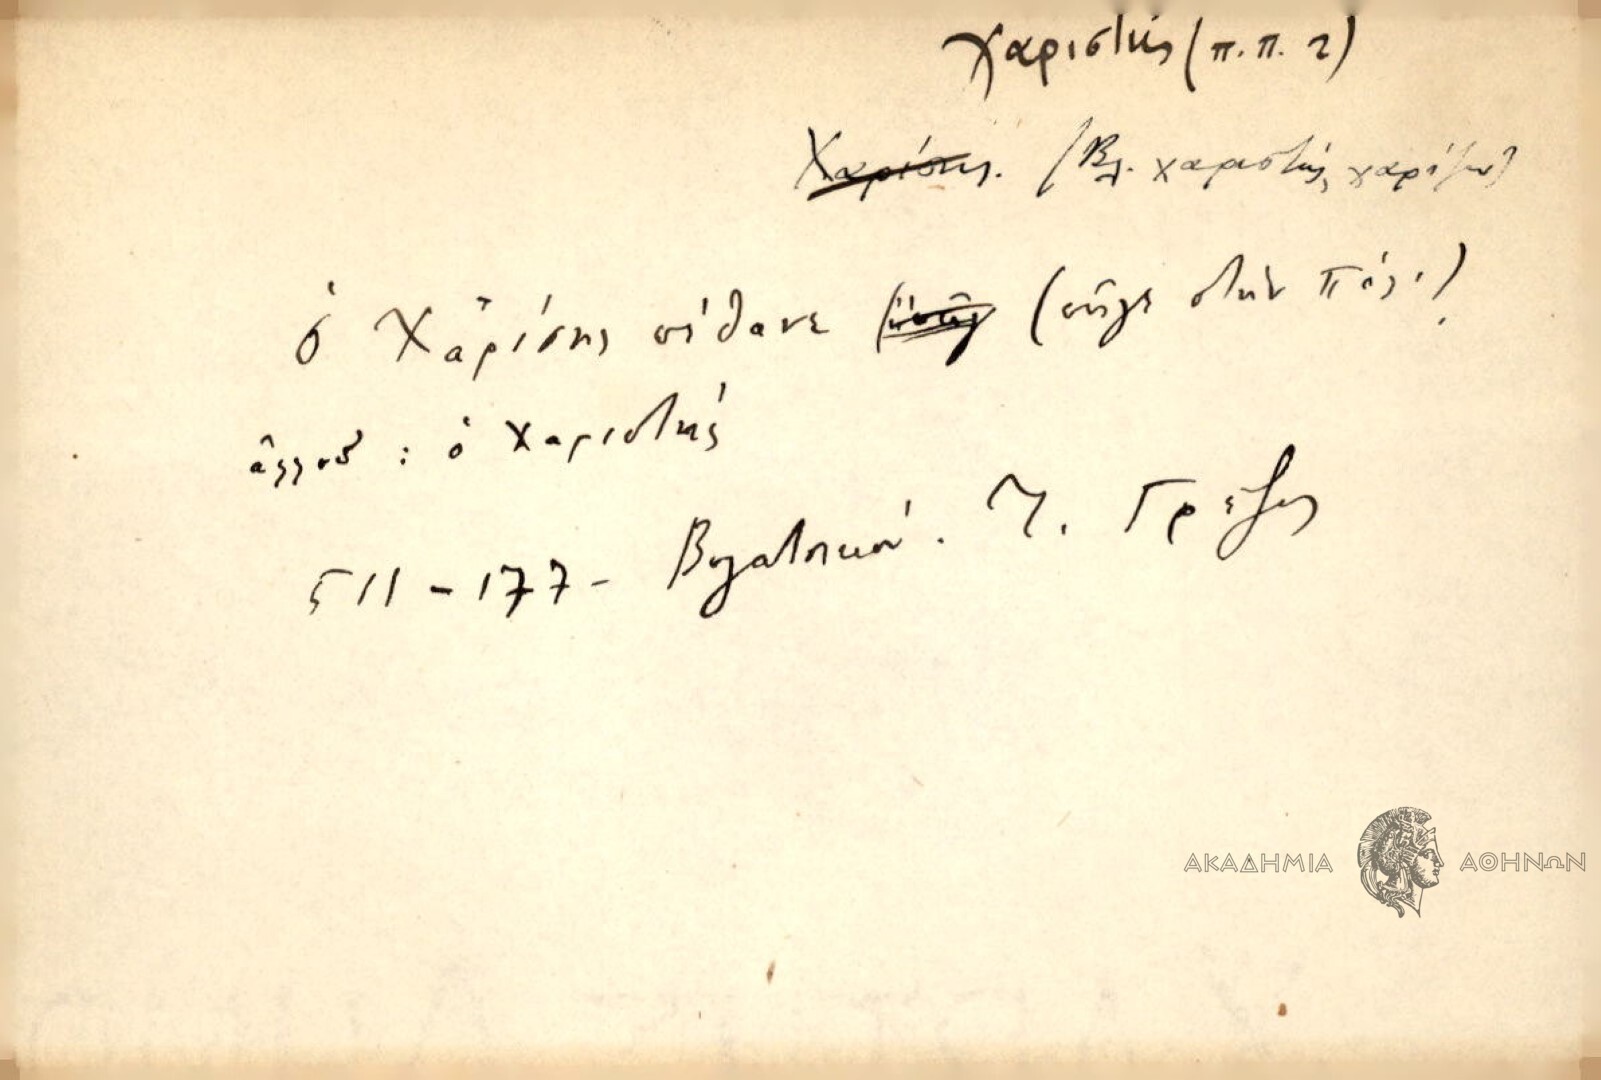 χαριστής (π.π. 2)
Χαρίσης. (Βλ. χαριστής, χαρίζω)
ὁ Χαρίσης πέθανε (πῆγε στὴν Πόλι)
ἀλλοῦ : ὁ χαριστής
511 - 177 - Βογατσικόν. Ι. Γρέζος
ΑΚΑΔΗΜΙΑ ΑΘΗΝΩΝ